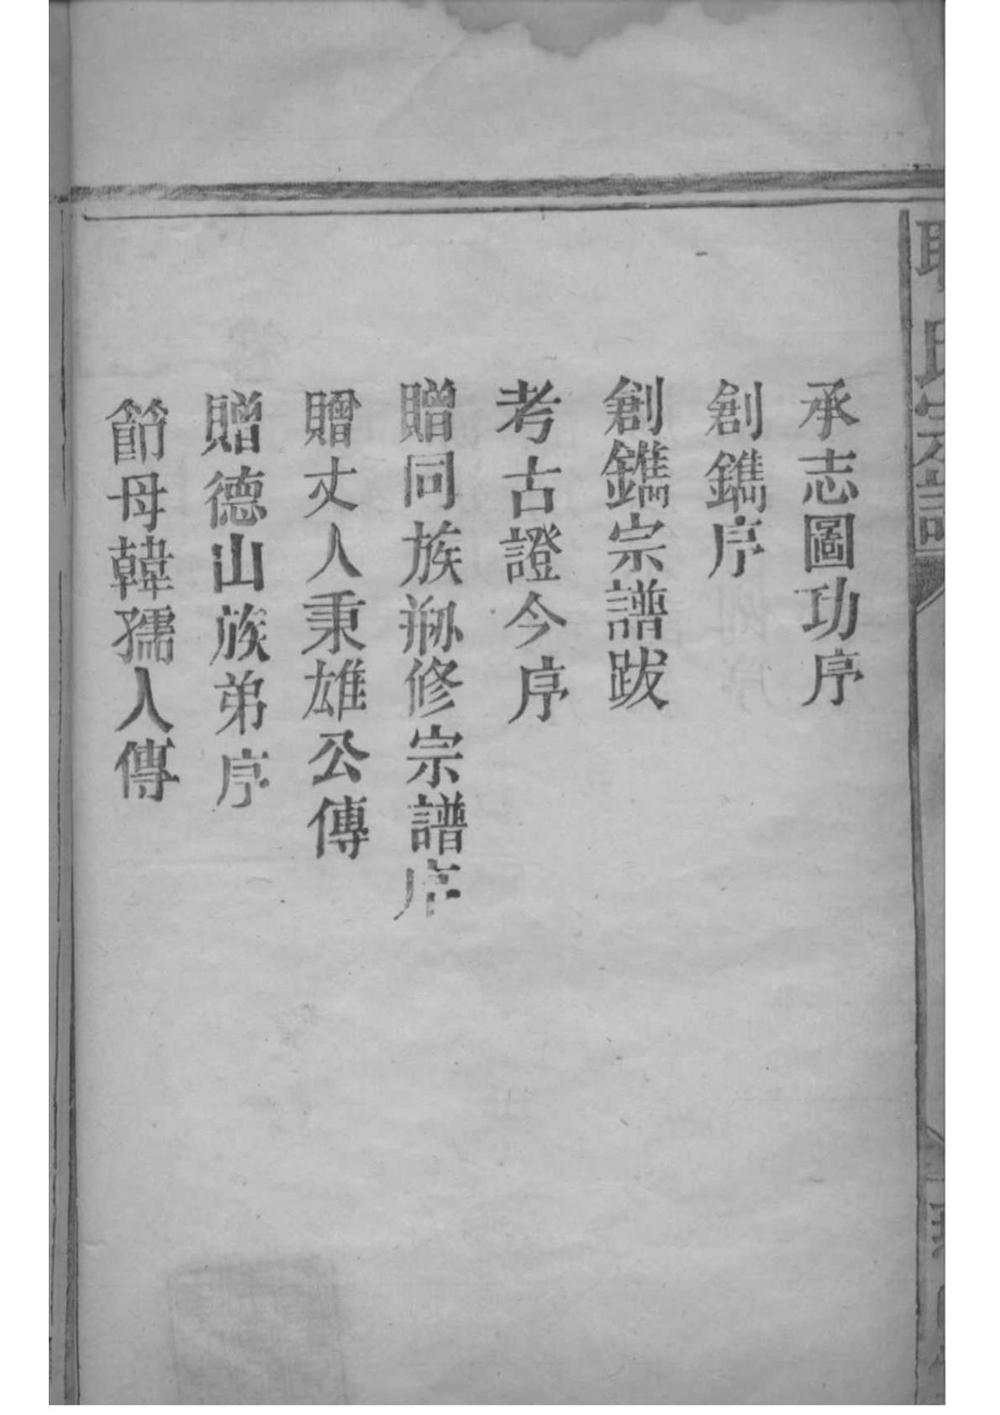 承志圖功序
創鐫序
創鐫宗譜跋
考古證今序
贈同族刱修宗譜序
贈丈人秉雄公傳
贈德山族弟序
節母韓孺人傳
氏宗譜